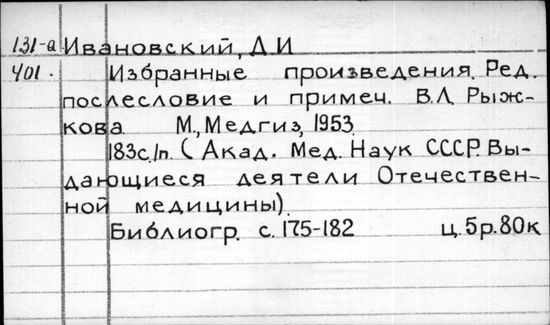 131-а Ивановский, Д.И
401. Избранные произведения. Ред.
послесловие и примеч. В.Л. Рыж-
кова М., Медгиз, 1953.
183с./п. (Акад. Мед. Наук СССР. Вы-
дающиеся деятели Отечествен-
ной медицины).
Библиогр. с. 175-182 ц. 5р. 80к